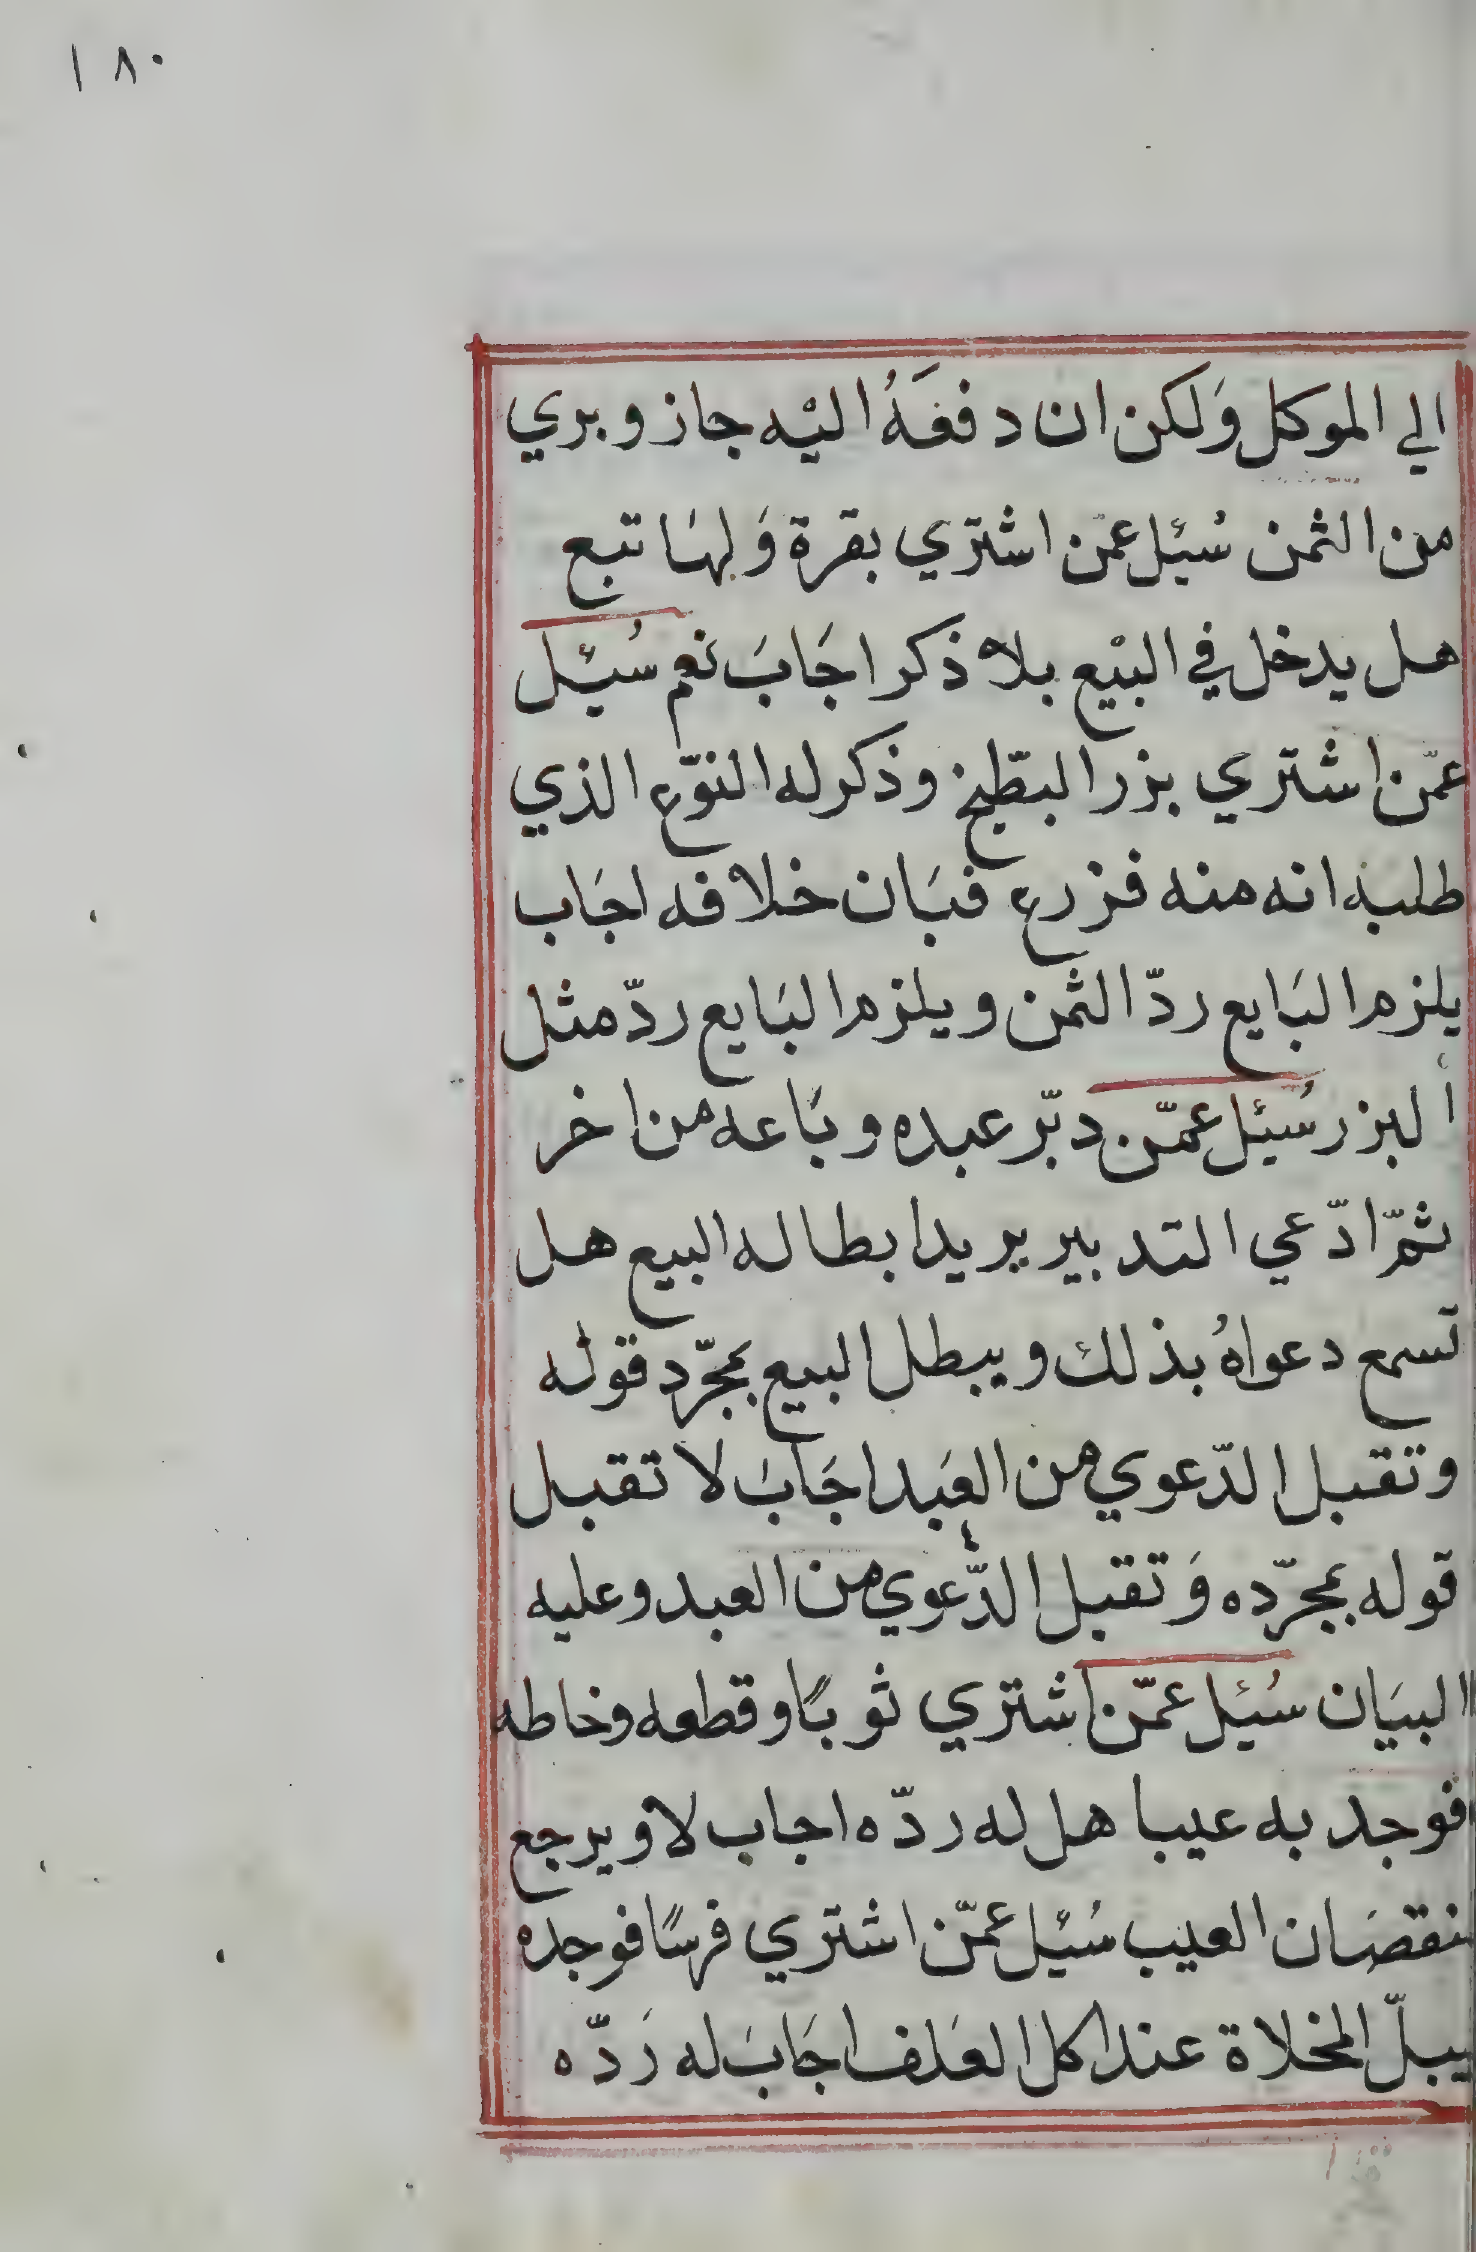 ١٨٠
الي الموكل وَلكن ان دفعَهُ اليْه جاز وبري
من الثمن سُئيل عمّن اشتري بقرة وَلهَا تبع
هل يدخل في البيْع بلا ذكر اجَابَ نعم سُئيل
عمّن اشتري بزر البطّيخ وذكر له النوّع الذي
طلبه انه منه فزرع فبَان خلافه اجَاب
يلزم البَايع ردّ الثمن ويلزم البَايع ردّ مثل
البزر سُئيل عمّن دبّر عبده وبَاعه من اخر
ثمّ ادّعي التدبير يريد ابطاله البيع هل
تسمع دعواهُ بذلك ويبطل البيع بمجرّد قوله
وتقبل الدّعوي من العَبد اجَابَ لا تقبل
قوله بمجرّده وَتقبل الدّعوي من العبد وعليه
البيَان سُئيل عمّن اشتري ثوبًا وقطعه وخاطه
فوجد به عيبا هل له ردّه اجاب لا ويرجع
بنقصَان العيب سُئيل عمّن اشتري فرسًا فوجده
يبلّ المخلاة عند اكل العَلف اجَابَ له رَدّه